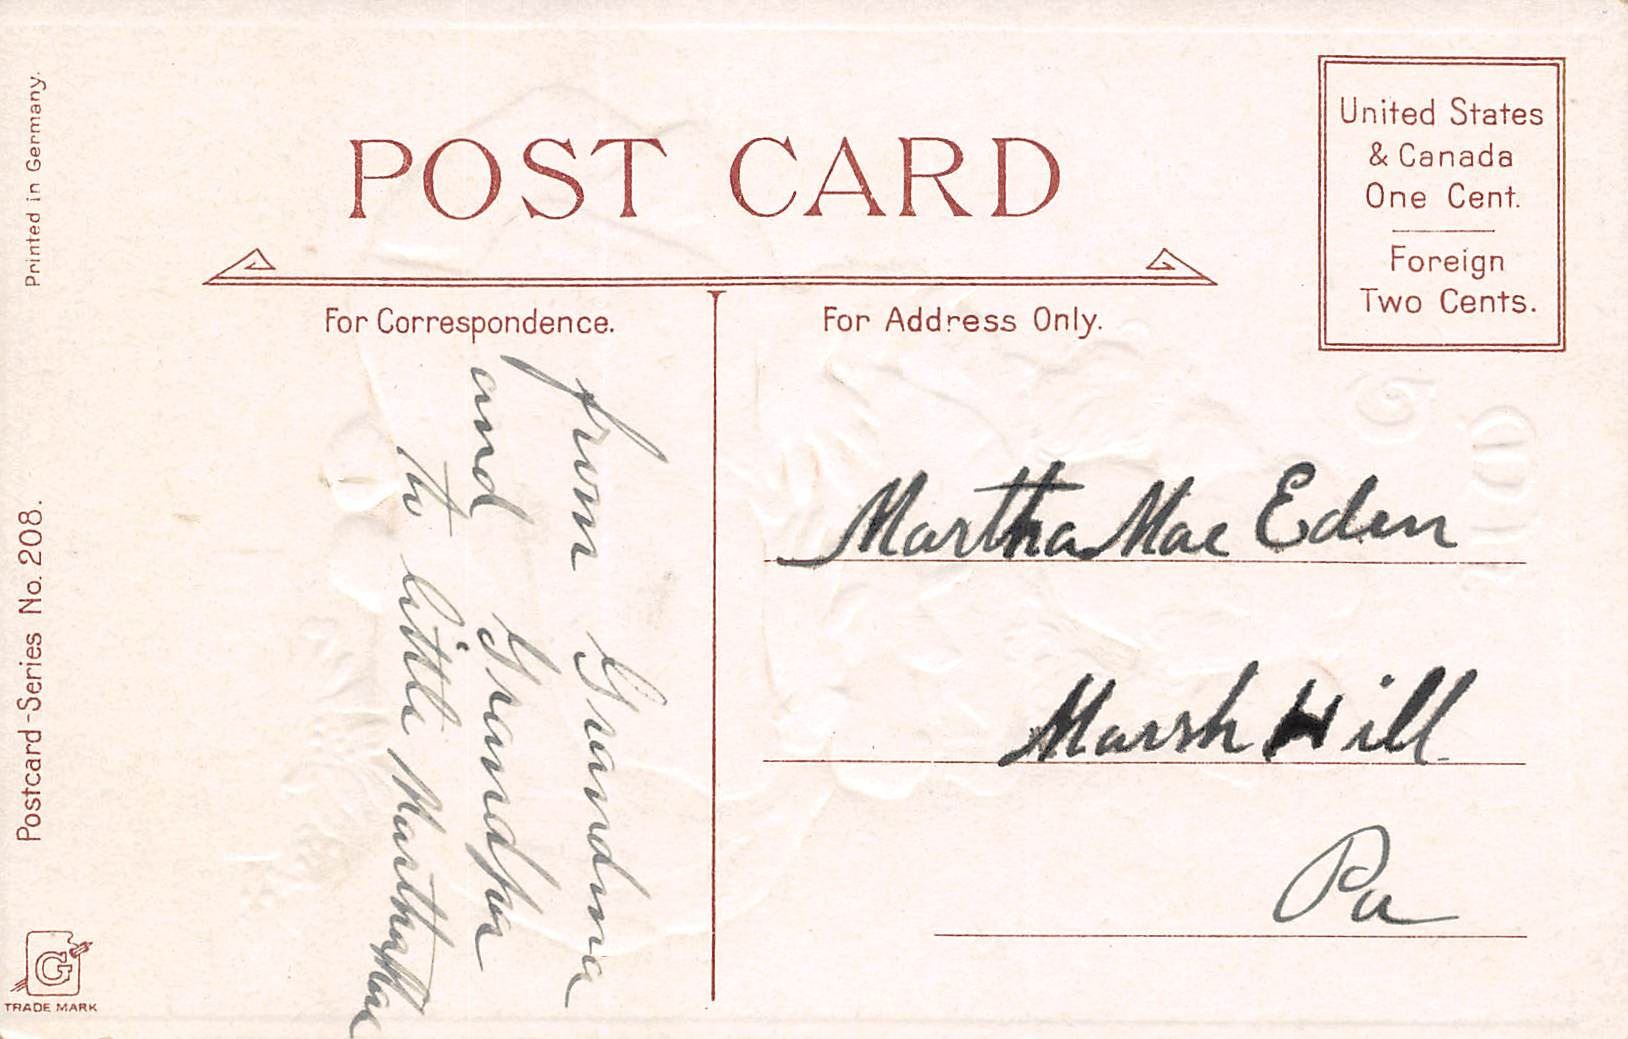 Printed in Germany.
POST CARD
United States
& Canada
One Cent.
Foreign
Two Cents.
For Correspondence.
For Address Only.
from Grandma
and Grandpa
to little Martha Mae
Martha Mae Eden
Marsh Hill
Pa
Postcard-Series No. 208.
G
TRADE MARK